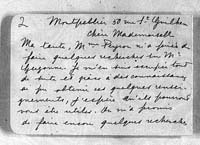 2 Montpellier 50 rue St Guilhem
Chère Mademoiselle
Ma tante, Mme Peyron m'a priée de
faire quelques recherches sur Mr
Je m'en suis occupée tout
de suite et grâce à des connaissances
j'ai pu obtenir ces quelques renseignements
gnements, j'espère qu'ils pourront
vous être utiles. On m'a promis
de faire encore quelques recherches